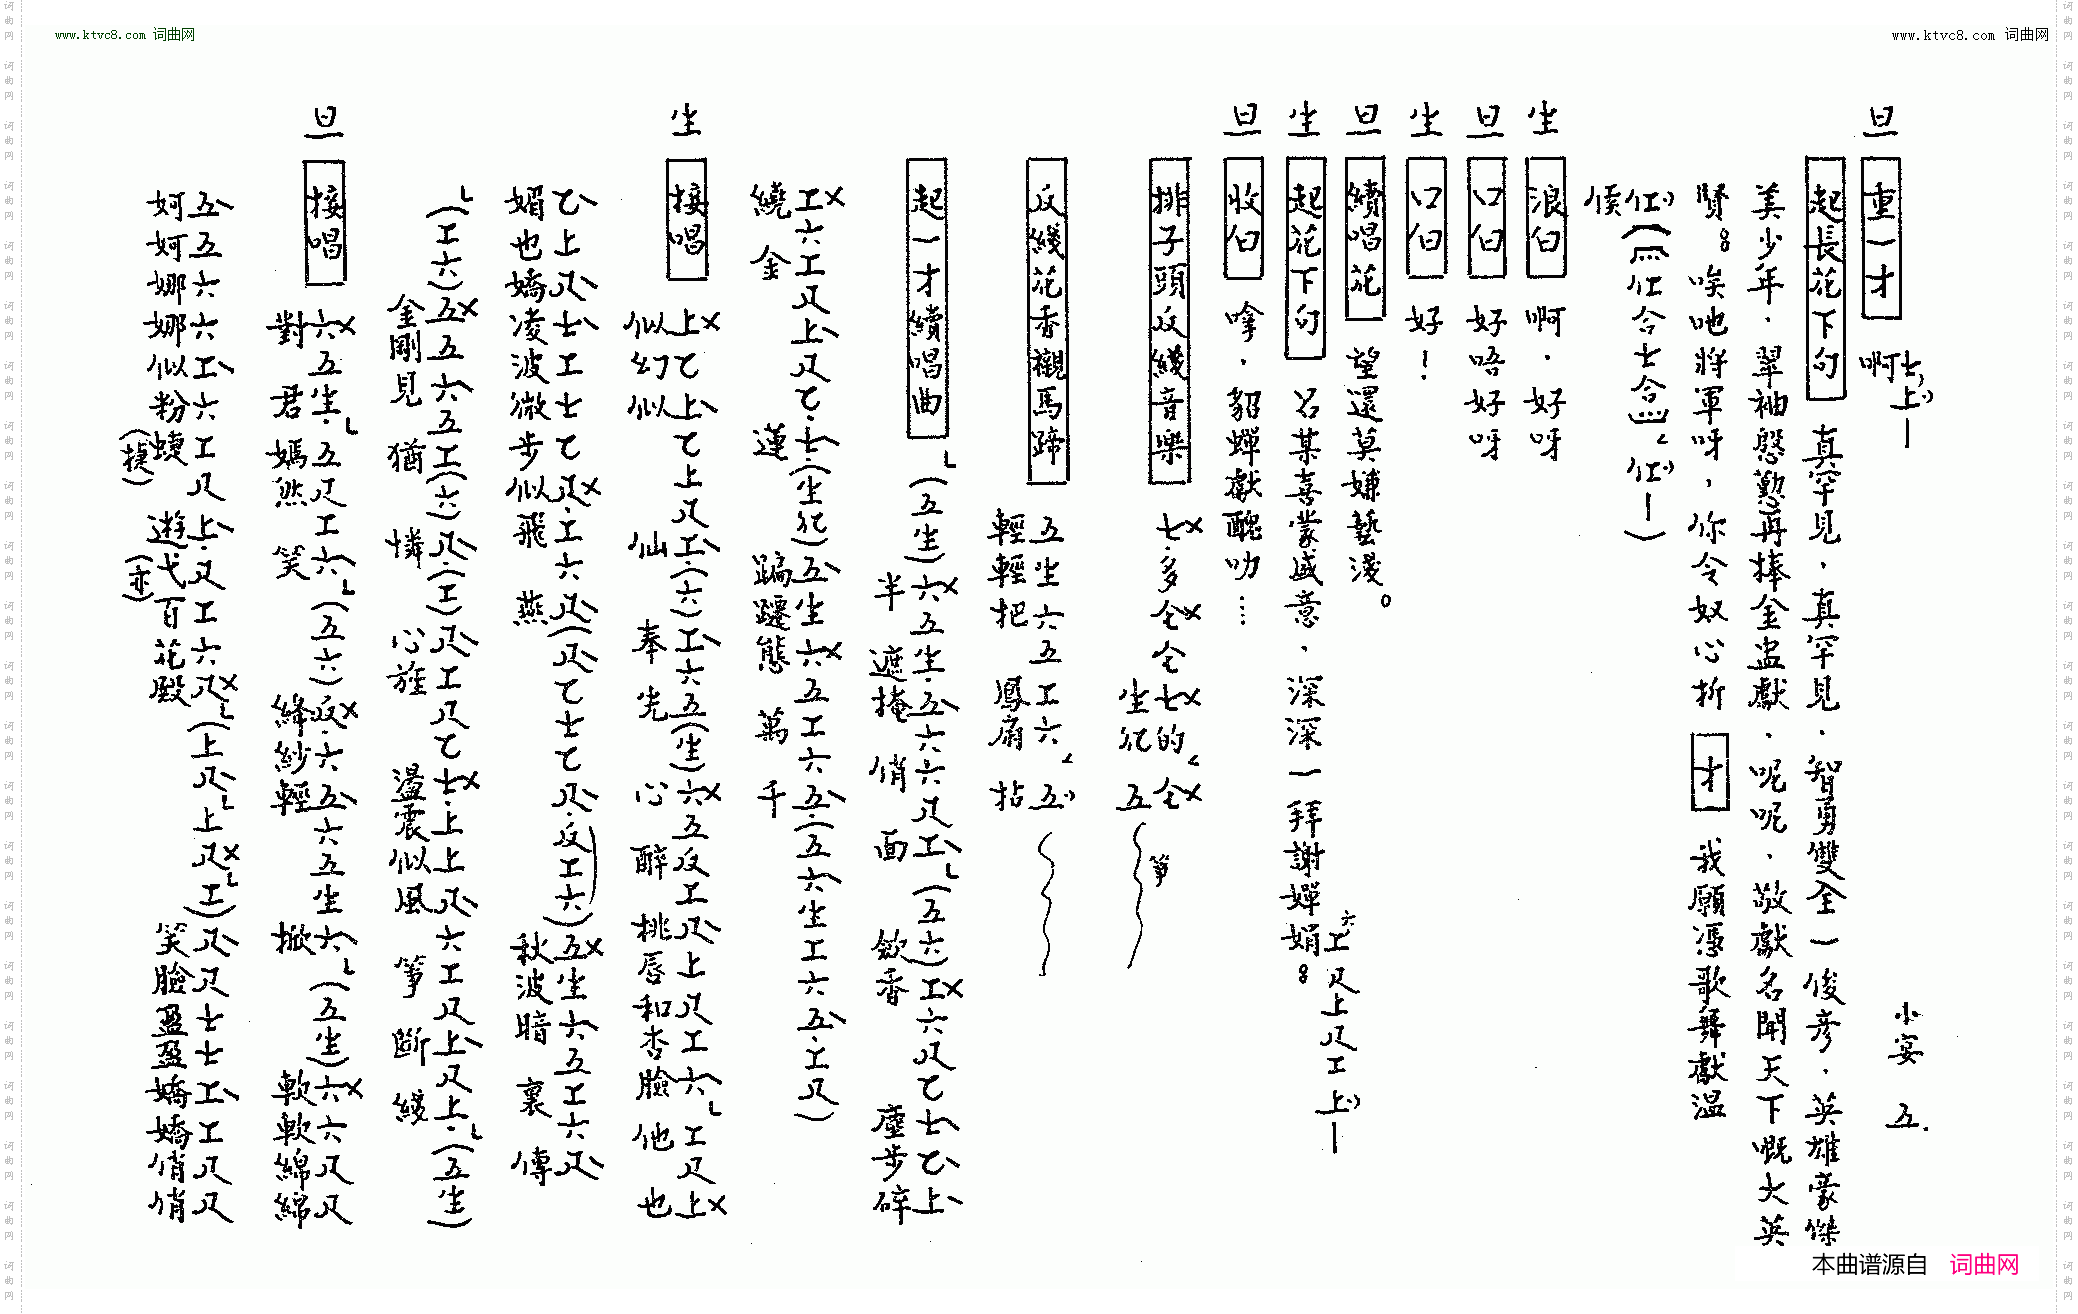 www.ktvc8.com 词曲网
www.ktvc8.com 词曲网
小宴 五.
旦 重一才 啊
士, 上 —
起長花下句 真罕見，真罕見．智勇雙全一俊彥．英雄豪傑
美少年．翠袖慇懃再捧金盅獻．呢呢．敬獻名聞天下嘅大英
賢。唉吔將軍呀，你令奴心折 才 我願憑歌舞獻温
生 浪白 啊．好呀
旦 口白 好唔好呀
生 口白 好！
旦 續唱花 望還莫嫌藝淺。
生 起花下句 呂某喜蒙盛意．深深一拜謝嬋娟。
六工尺上尺工上 —
旦 收白 嗱．貂蟬獻醜叻…
排子頭反綫音樂
箏
反綫花香襯馬蹄
五生六五工六 五
輕輕把 鳳扇拈
起一才續唱曲
(五生)六五生五六六尺工(五六)工六尺乙士乙上
半遮掩俏面 歛香塵步碎
工六工尺上尺乙士(生化)五生六五工六五(五六生工六五工尺)
繞金蓮 蹁躚態萬千
生 接唱
上乙上乙上尺工(六)工六五(生)六五反工尺上尺工六工尺上
似幻似仙 奉光心醉桃唇和杏臉他也
乙上尺士工士乙尺工六尺(尺乙士乙尺反工六)五生六五工六尺
媚也嬌凌波微步似飛燕 秋波暗裏傳
(工六)五五六五工(六)尺(工)尺工尺乙士上上尺六工尺上尺上(五生)
金剛見猶憐 心旌盪震似風箏斷綫
旦 接唱
六五生五尺工六(五六)反六五六五生六(五生)六六尺尺
對君嫣然笑 絳紗輕掀 軟軟綿綿
五五六六工六工尺上尺工六尺(上尺上尺工)尺尺士士工工尺尺
婀婀娜娜似粉蝶(捷)遊弋(亦)百花殿 笑臉盈盈嬌嬌俏俏
本曲谱源自 词曲网